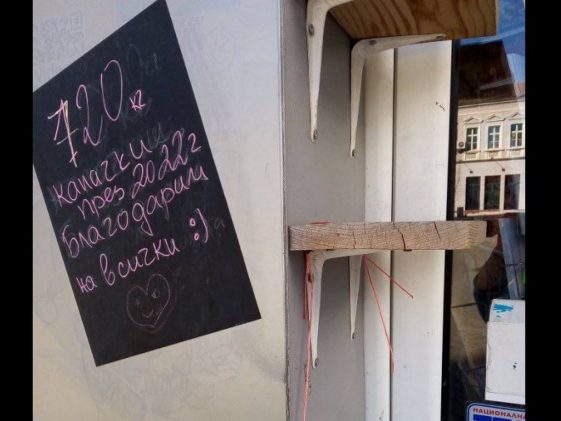 720 кг
капачки
през 2022г
благодарим
на всички :)
НАЦИОНАЛНА